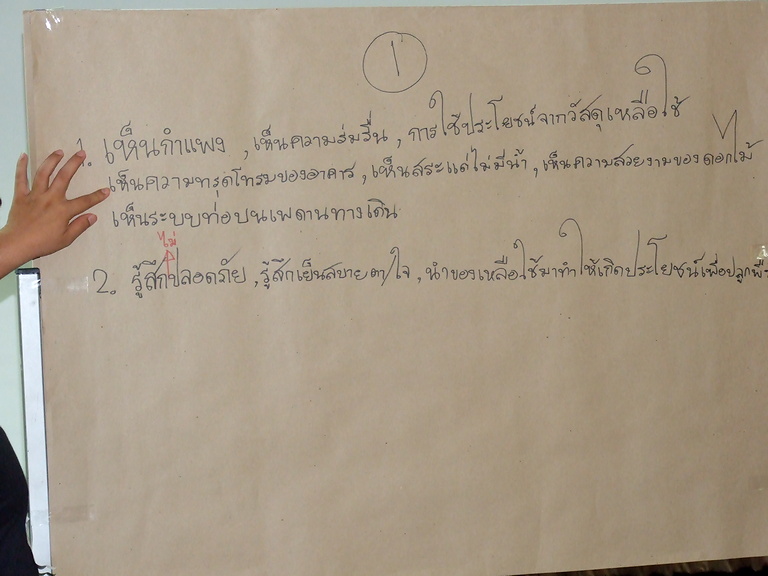 1
1. เห็นกำแพง , เห็นความร่มรื่น , การใช้ประโยชน์จากวัสดุเหลือใช้
เห็นความทรุดโทรมของอาคาร , เห็นสระแต่ไม่มีน้ำ , เห็นความสวยงามของดอกไม้
เห็นระบบท่อบนเพดานทางเดิน
ไม่
2. รู้สึกปลอดภัย , รู้สึกเย็นสบายตา/ใจ , นำของเหลือใช้มาทำให้เกิดประโยชน์เพื่อปลูก